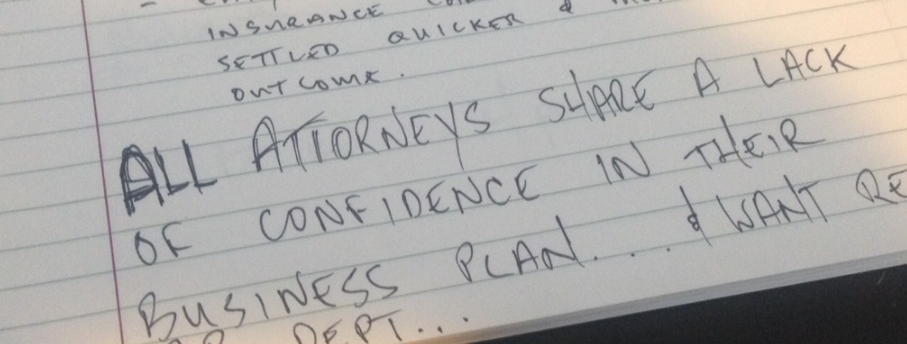 INSURANCE
SETTLED QUICKER &
OUTCOME.
ALL ATTORNEYS SHARE A LACK
OF CONFIDENCE IN THEIR
BUSINESS PLAN.... & WANT
DEPT...